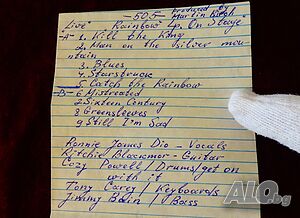 - 50,5 - Produced by
Martin Birch
Live Rainbow Lp. On Stage
-A- 1. Kill the King
2. Man on the silver moun
tain
3. Blues
4. Starstruck
5. Catch the Rainbow
-B- 6 Mistreated
7 Sixteen Century
8 Greensleeves
9 Still I'm Sad
Ronnie James Dio - Vocals
Ritchie Blackmor - Guitar
Cozy Powell / Drums/get on
with it
Tony Carey / Keyboards
Jimmy Bain / Bass
ALO.bg